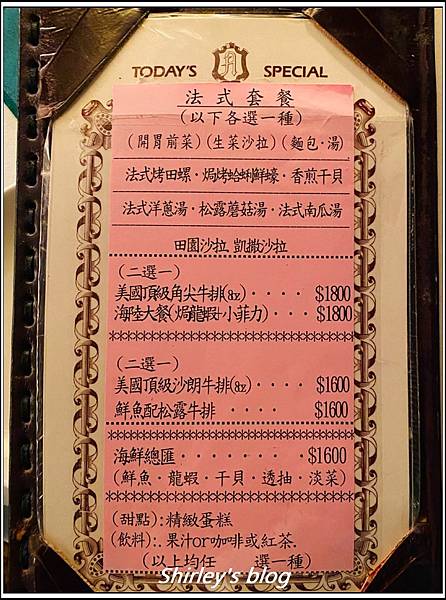 TODAY'S A SPECIAL
法式套餐
(以下各選一種)
(開胃前菜)(生菜沙拉)(麵包·湯)
法式烤田螺·焗烤蛤蜊鮮蠔·香煎干貝
法式洋蔥湯·松露蘑菇湯·法式南瓜湯
田園沙拉 凱撒沙拉
(二選一)
美國頂級角尖牛排(8z)···· $1800
海陸大餐(焗龍蝦+小菲力)··· $1800
********************
(二選一)
美國頂級沙朗牛排(8z)···· $1600
鮮魚配松露牛排 ···· $1600
********************
海鮮總匯 ······ $1600
(鮮魚·龍蝦·干貝·透抽·淡菜)
********************
(甜點):精緻蛋糕
(飲料):.果汁or咖啡或紅茶.
(以上均任 選一種)
Shirley's blog